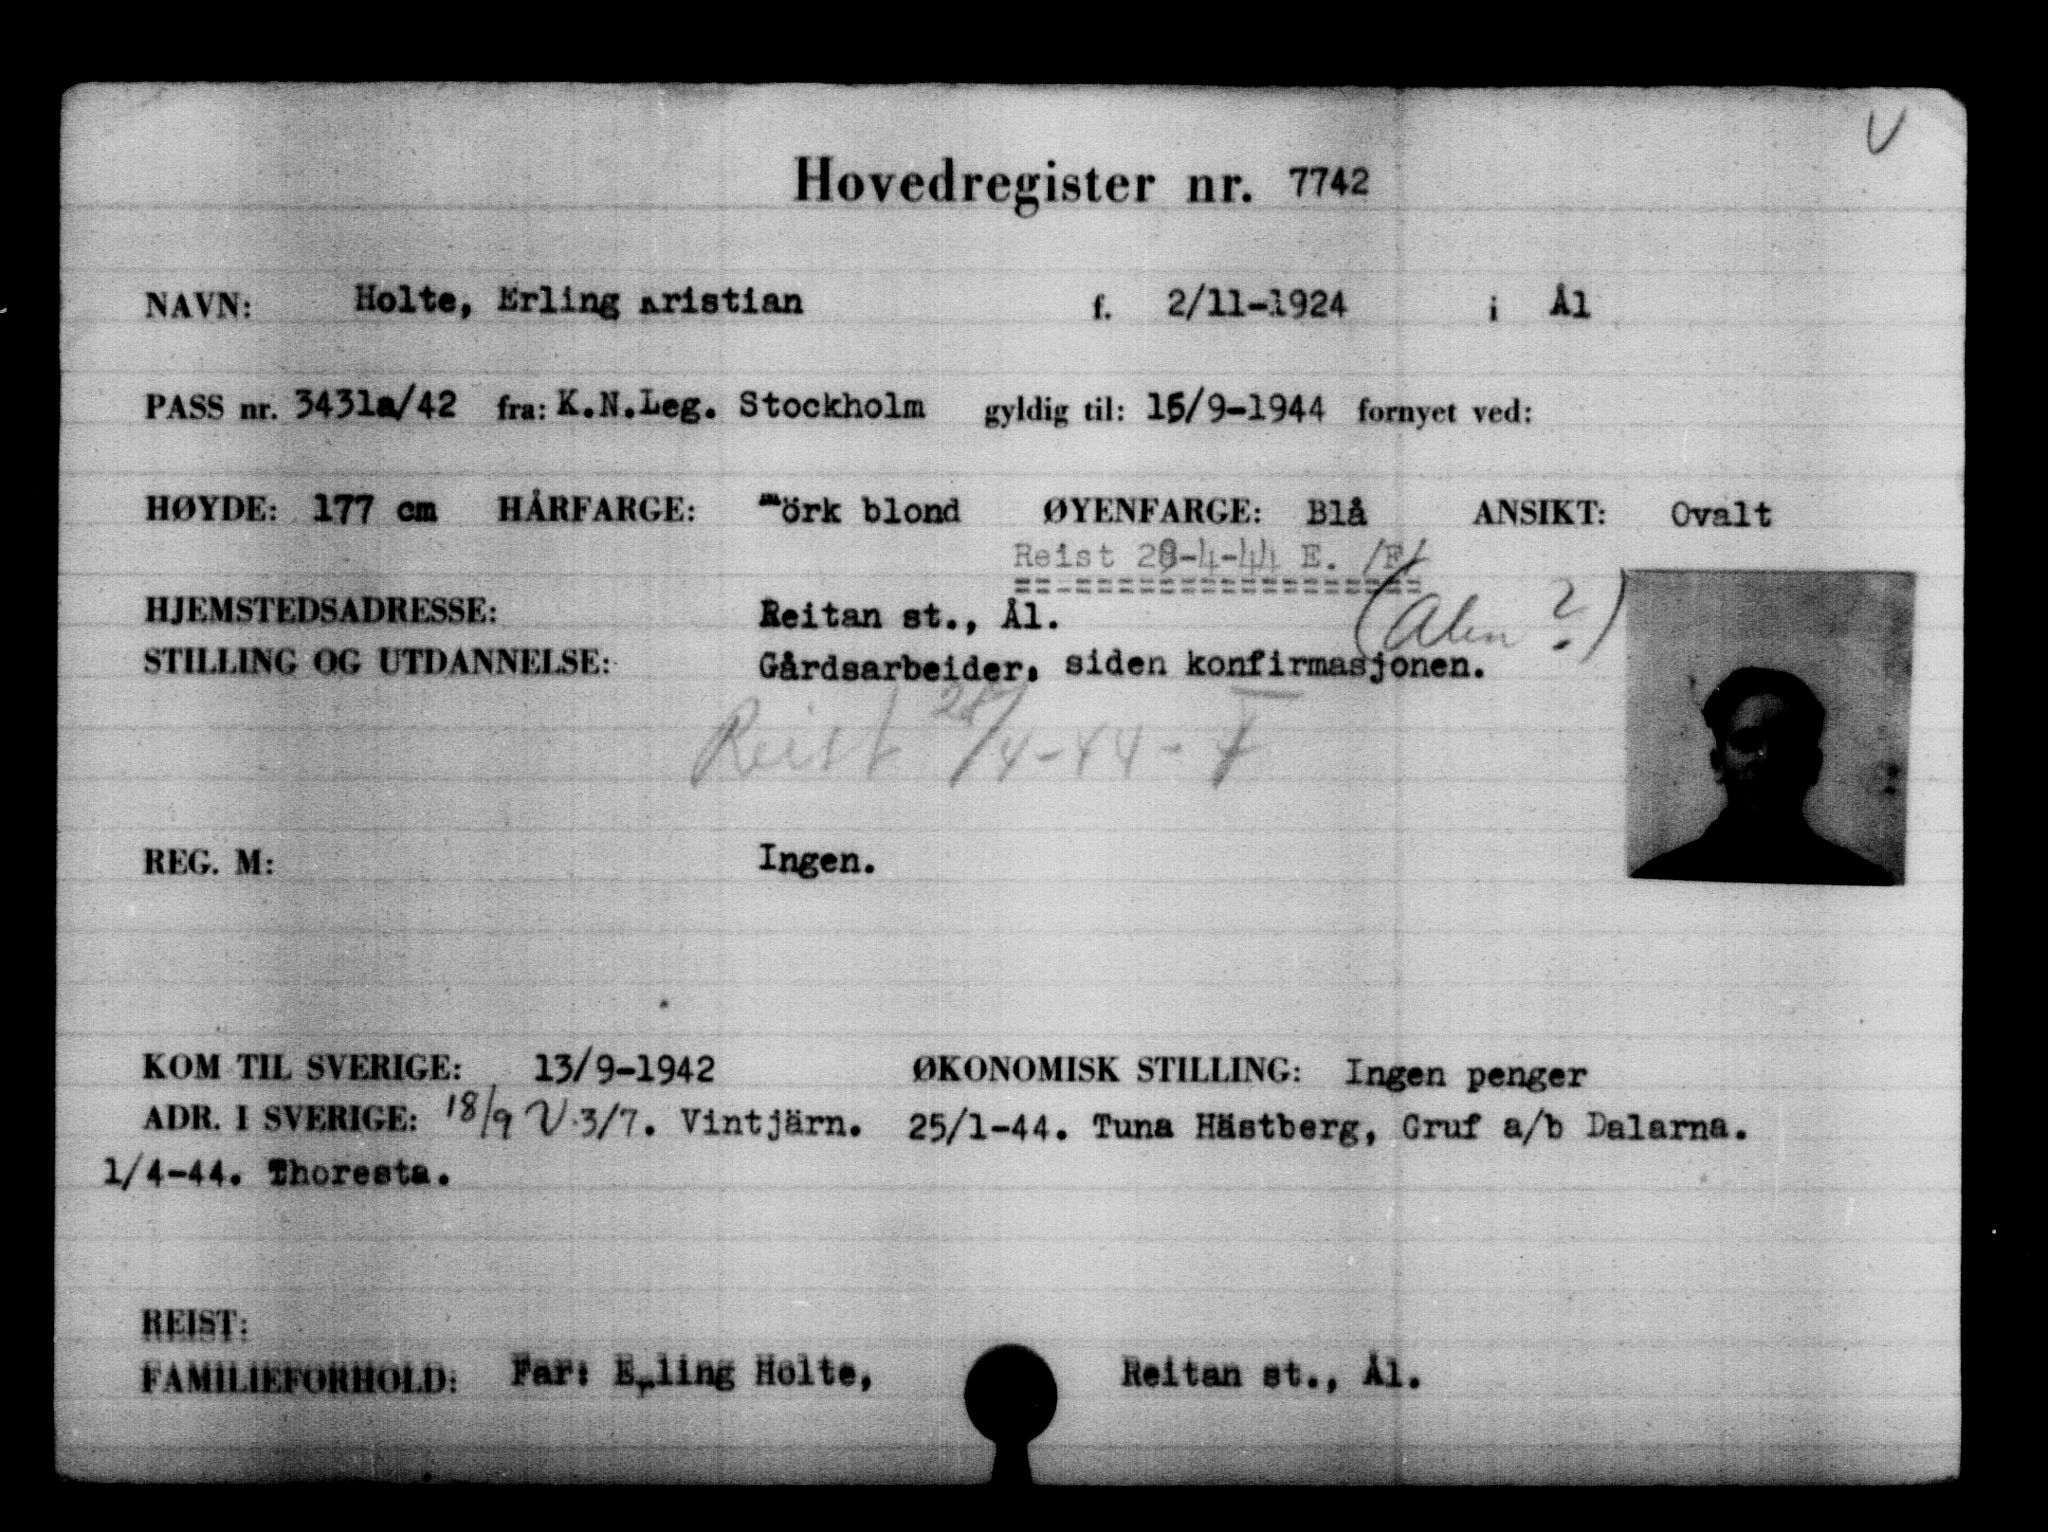 V
Hovedregister nr. 7742
NAVN: Holte, Erling Kristian f. 2/11-1924 i Ål
PASS nr. 3431a/42 fra: K.N.Leg. Stockholm gyldig til: 15/9-1944 fornyet ved:
HØYDE: 177 cm HÅRFARGE: Mörk blond ØYENFARGE: Blå ANSIKT: Ovalt
Reist 28-4-44 E. /F/
HJEMSTEDSADRESSE: Reitan st., Ål. (Alen ?)
STILLING OG UTDANNELSE: Gårdsarbeider, siden konfirmasjonen.
Reist 28/4-44-
REG. M: Ingen.
KOM TIL SVERIGE: 13/9-1942 ØKONOMISK STILLING: Ingen penger
ADR. I SVERIGE: 18/9 V. 3/7. Vintjärn. 25/1-44. Tuna Hästberg, Gruf a/b Dalarna.
1/4-44. Thoresta.
REIST:
FAMILIEFORHOLD: Far: Erling Holte, Reitan st., Ål.